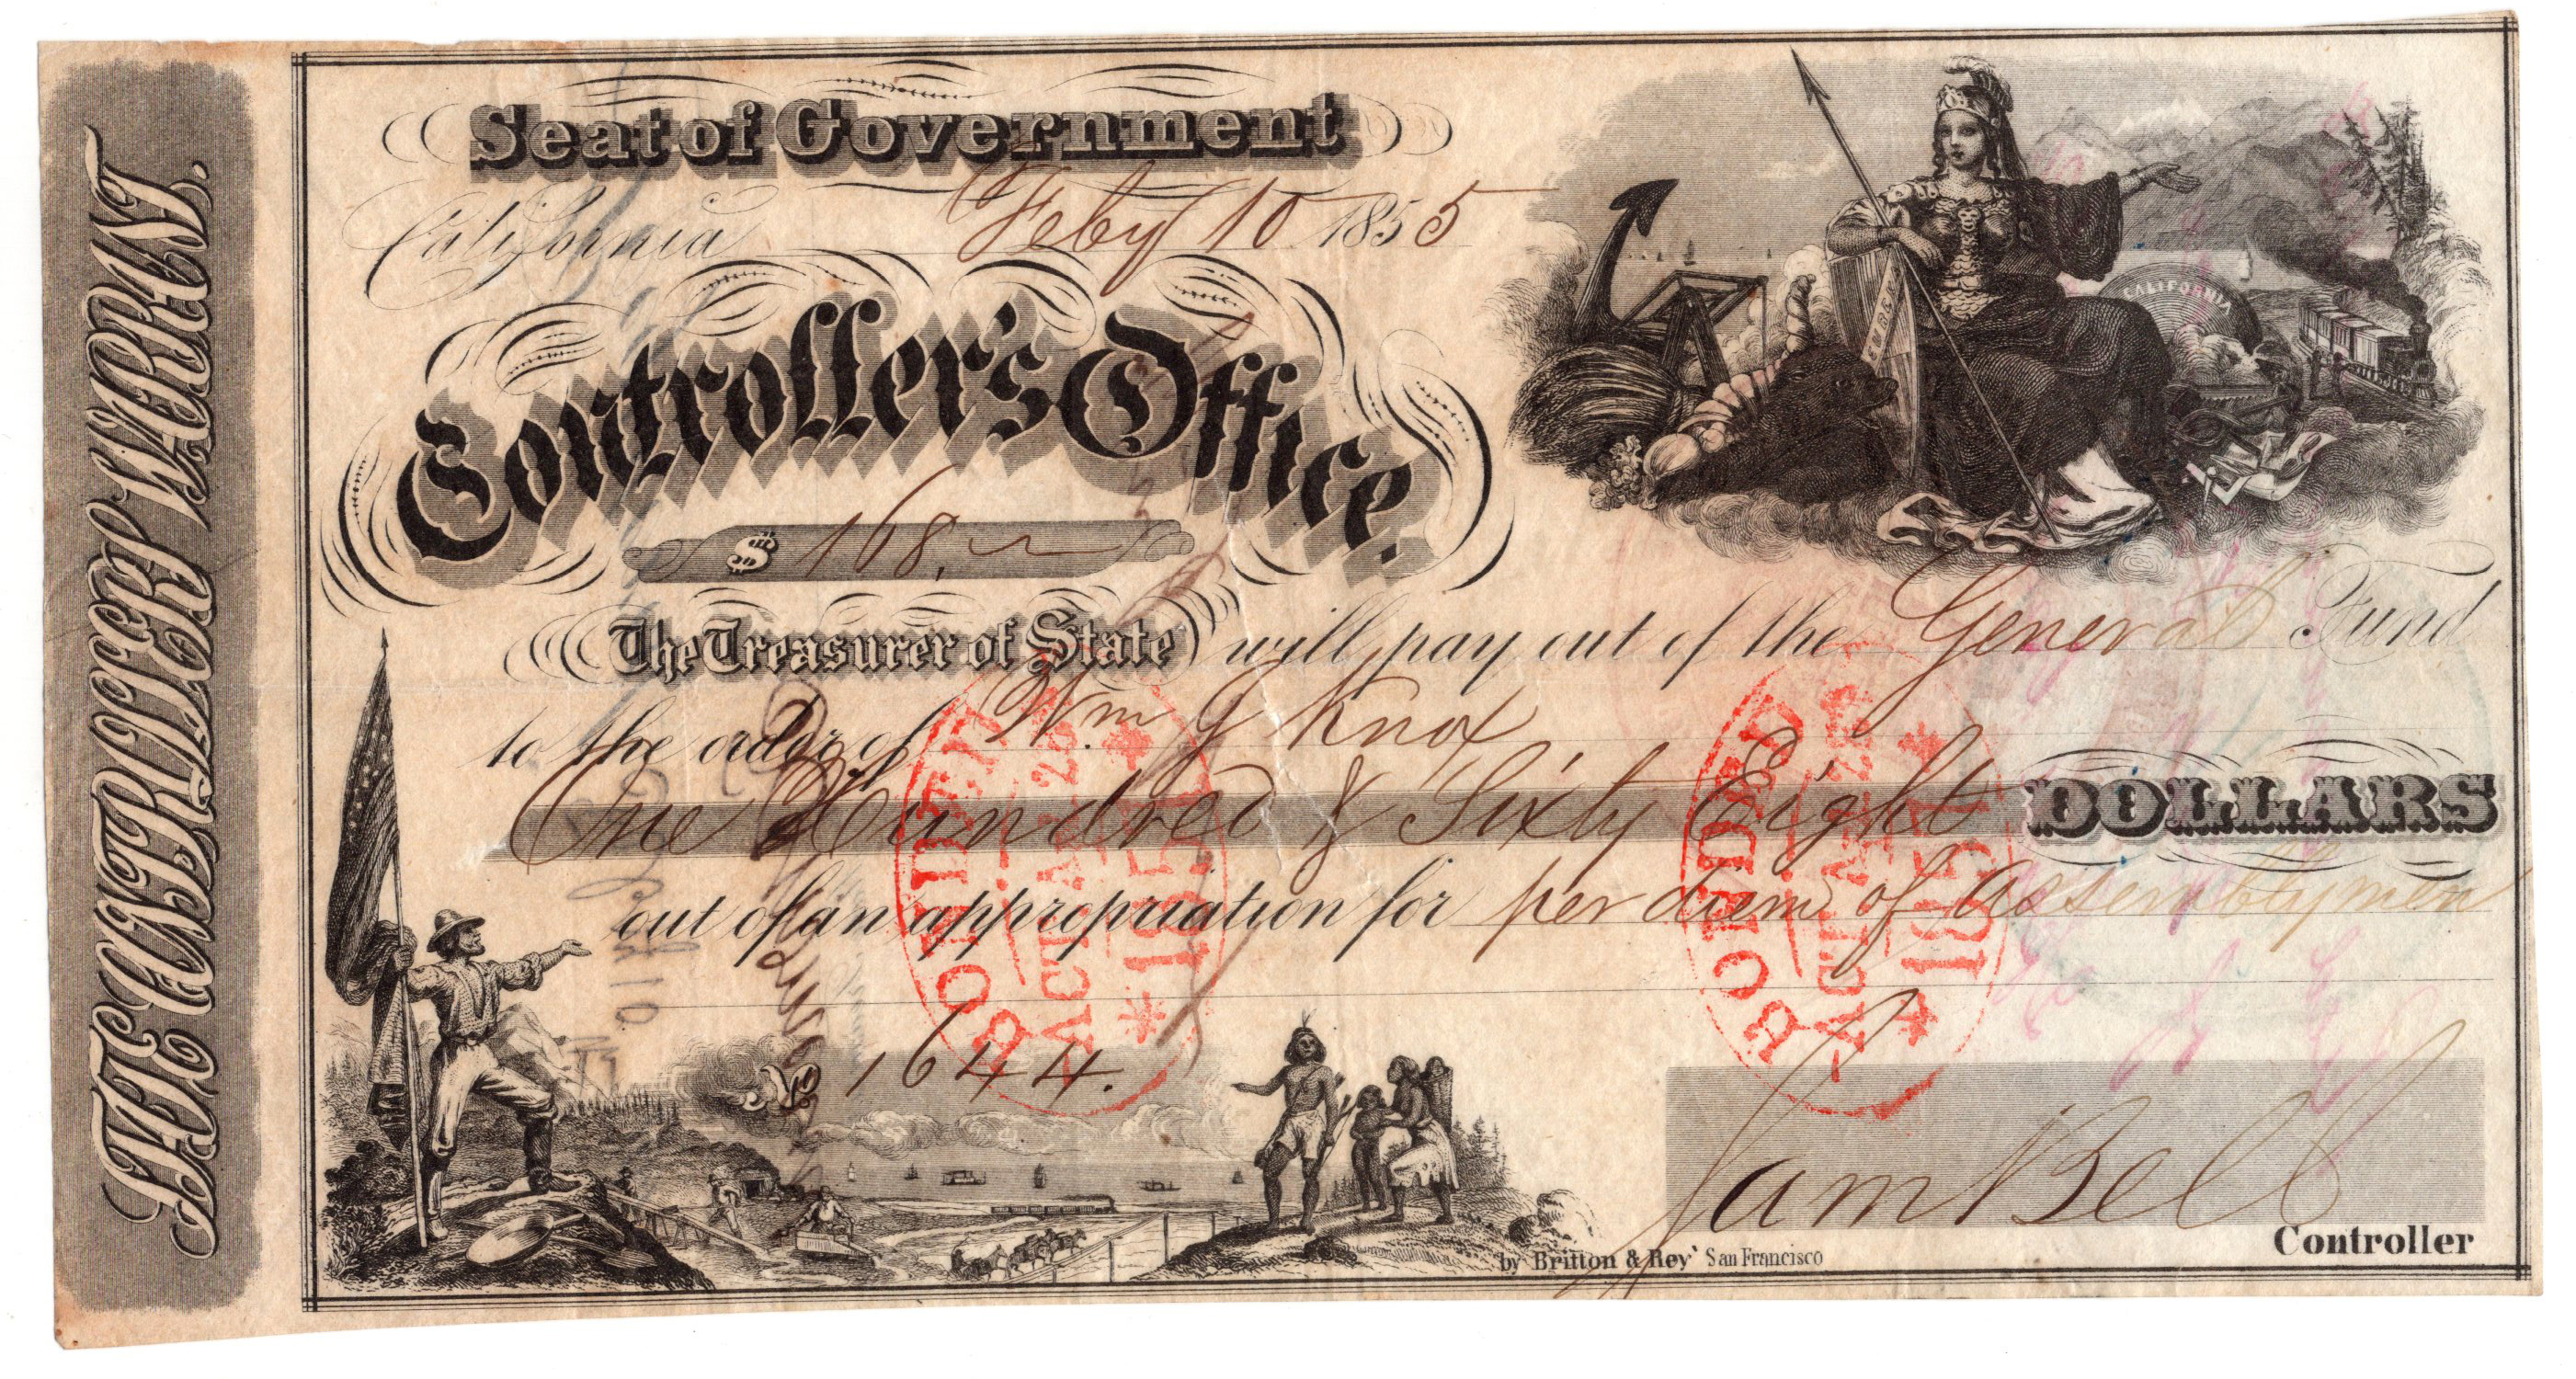 THE CONTROLLERS WARRANT.
Seat of Government
California Feby 10 1855
Controller's Office.
$ 168.
The Treasurer of State will pay out of the General Fund
to the order of Wm J Knox
One Hundred & Sixty Eight DOLLARS
out of an appropriation for per diem of Assemblymen
No 1644.
Sam Bell
Controller
by Britton & Rey San Francisco
EUREKA
CALIFORNIA
BONDED
ACT A 28
* 1857 *
BONDED
ACT A 28
* 1857 *